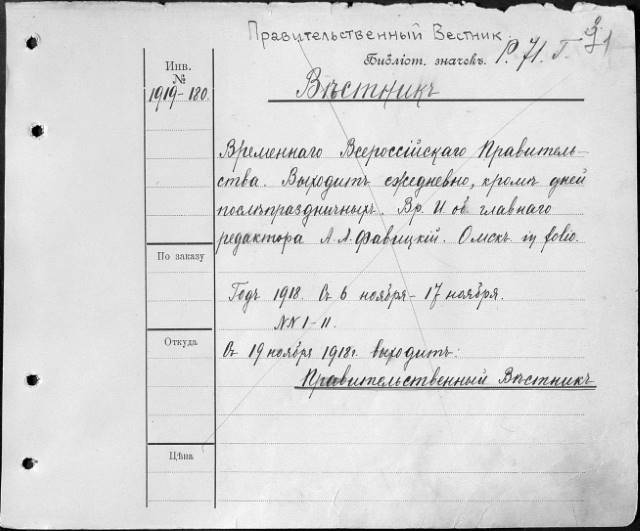 Правительственный Вестник.
Библіот. значекъ. Р. 71. Г.
Инв.
№
1919-180.
Вѣстникъ
Временнаго Всероссійскаго Правитель-
ства. Выходитъ ежедневно, кромѣ дней
послѣпраздничныхъ. Вр. И об главнаго
редактора Л. А. Фавицкій. Омскъ in folio.
По заказу
Годъ 1918. Съ 6 ноября - 17 ноября.
NN 1-11.
Откуда
Съ 19 ноября 1918 г. выходитъ:
Правительственный Вѣстникъ
Цѣна